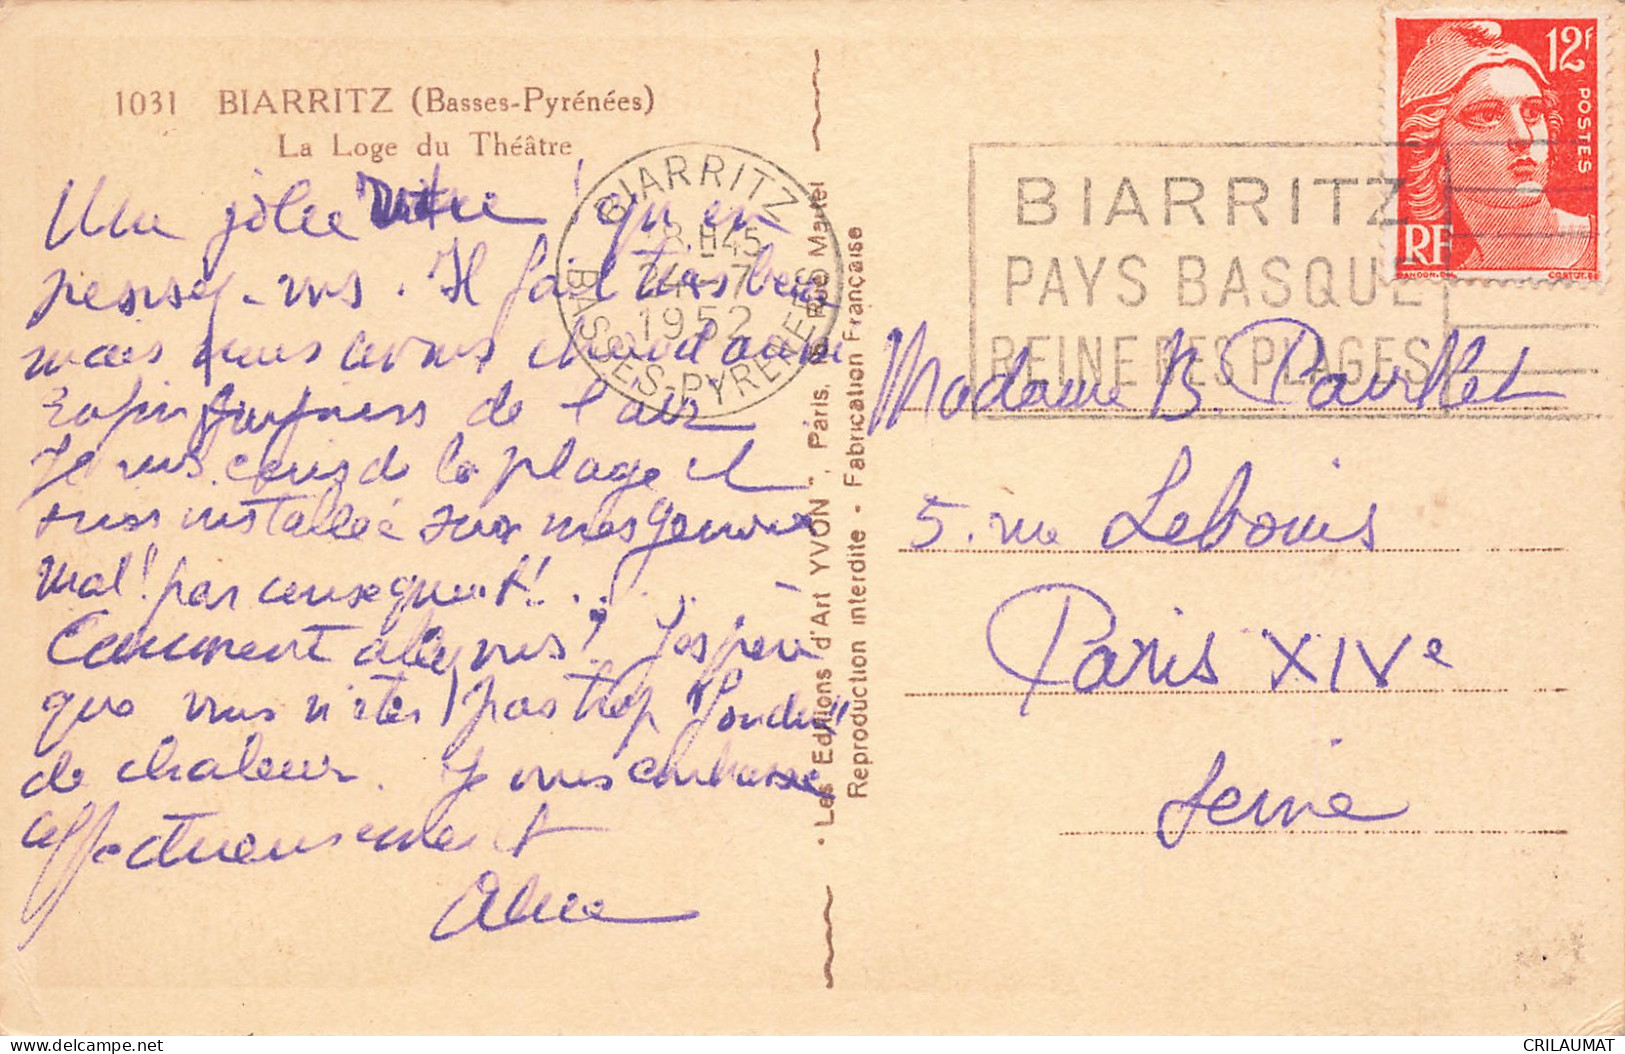 1031 BIARRITZ (Basses-Pyrénées)
La Loge du Théâtre
Une jolie vue ! qu'en
pensez-vous. Il fait très beau
mais nous avons chaud aussi
Enfin toujours de l'air
Je vous de la plage et
suis installée sur mes genoux
mal! par conséquent!..
Comment allez vous? J'espère
que vous n'êtes pas trop "fondus"
de chaleur. Je vous embrasse
affectueusement
BIARRITZ
18 H 45
24-7
1952
BASSES-PYRENEES
- Les Editions d'Art YVON", Paris, 15 Rue Martel
Reproduction interdite - Fabrication Française
12F
POSTES
RF
GANDON.DEL
CORTOT.SC
BIARRITZ
PAYS BASQUE
REINE DES PLAGES
Madame B.
5. rue Lebouis
Paris XIVe
Seine
CRILAUMAT
delcampe.net